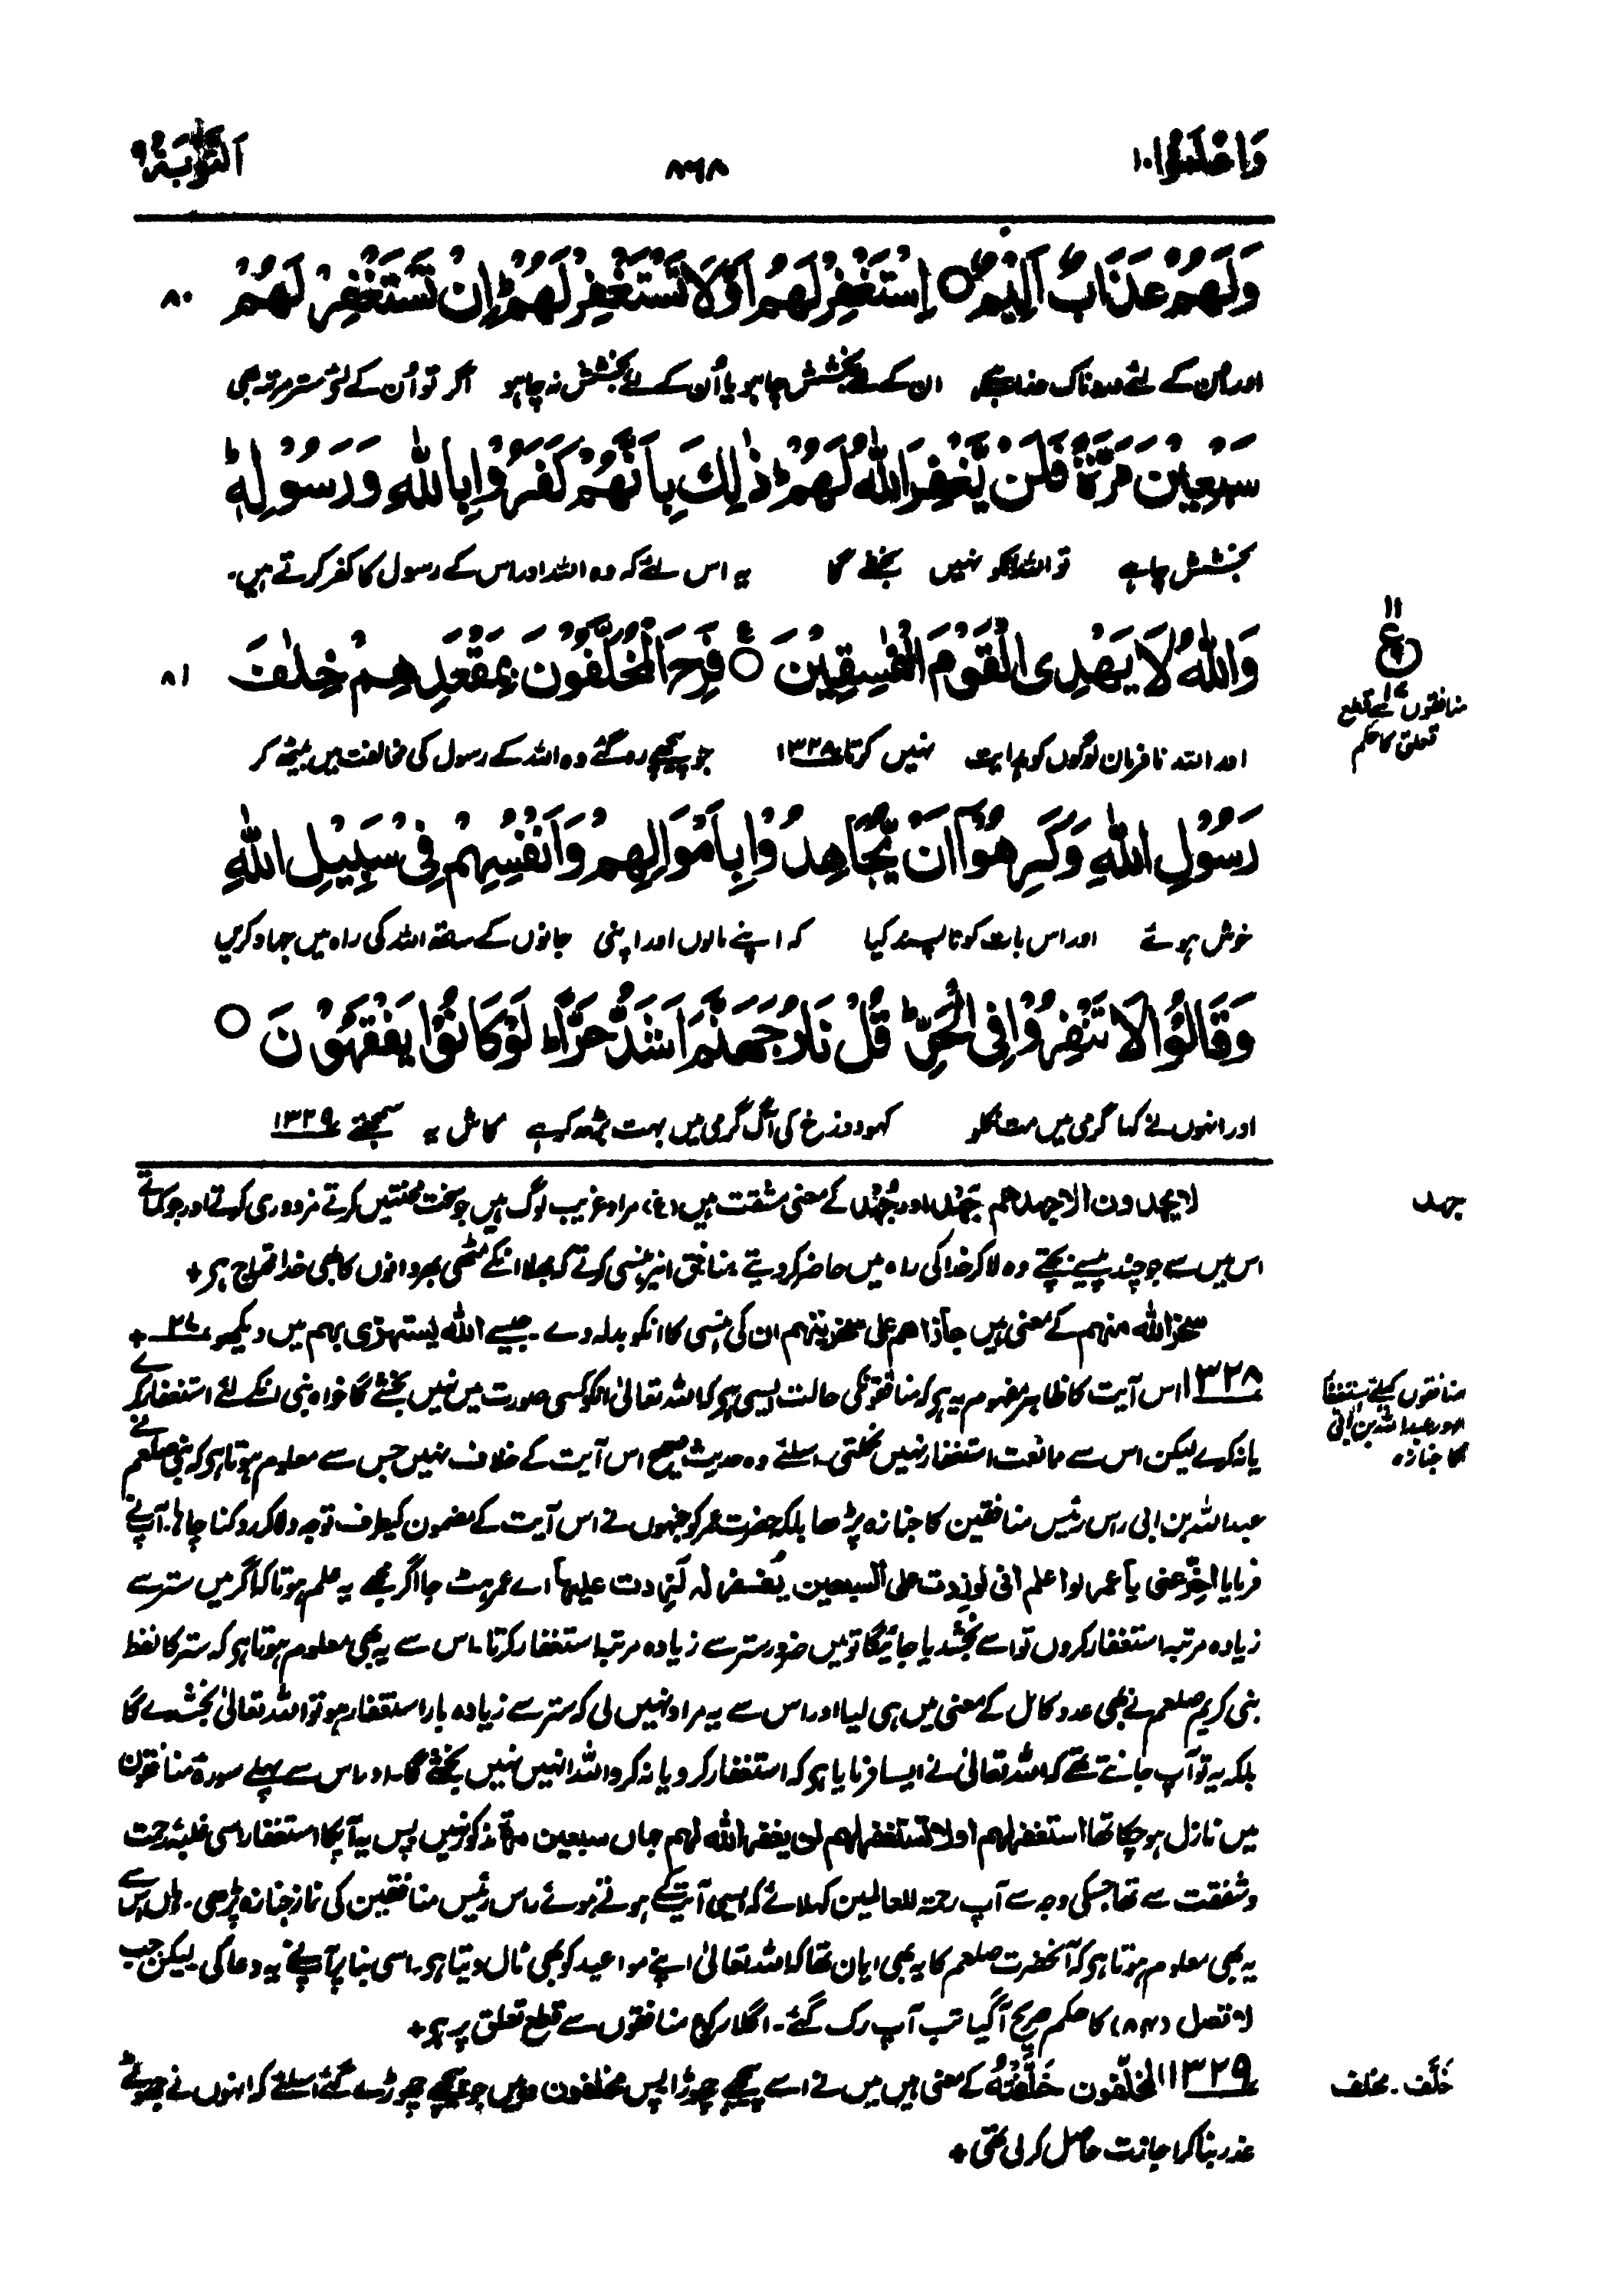 وَاعْلَمُوْا ۱۰
۸۶۸
اَلتَّوْبَة ۹
وَلَهُمْ عَذَابٌ اَلِيْمٌ ○ اِسْتَغْفِرْ لَهُمْ اَوْ لَا تَسْتَغْفِرْ لَهُمْ ؕ اِنْ تَسْتَغْفِرْ لَهُمْ
۸۰
اور اُن کے لئے دردناک عذاب ہے ان کے لئے بخشش چاہو یا اُن کے لئے بخشش نہ چاہو اگر تو اُن کے لئے ستر مرتبہ بھی
سَبْعِيْنَ مَرَّةً فَلَنْ يَّغْفِرَ اللّٰهُ لَهُمْ ؕ ذٰلِكَ بِاَنَّهُمْ كَفَرُوْا بِاللّٰهِ وَرَسُوْلِهٖ ؕ
بخشش چاہے تو اللہ انکو نہیں بخشے گا یہ اس لئے کہ وہ اللہ اور اس کے رسول کا کفر کرتے ہیں۔
وَاللّٰهُ لَا يَهْدِى الْقَوْمَ الْفٰسِقِيْنَ ○ ع فَرِحَ الْمُخَلَّفُوْنَ بِمَقْعَدِهِمْ خِلٰفَ
۸۱
۱۱
ع
منافقوں سے قطع
تعلق کا حکم
اور اللہ نافرمان لوگوں کو ہدایت نہیں کرتا ۱۳۲۸ جو پیچھے رہ گئے وہ اللہ کے رسول کی مخالفت میں بیٹھ کر
رَسُوْلِ اللّٰهِ وَكَرِهُوْٓا اَنْ يُّجَاهِدُوْا بِاَمْوَالِهِمْ وَاَنْفُسِهِمْ فِىْ سَبِيْلِ اللّٰهِ
خوش ہوئے اور اس بات کو ناپسند کیا کہ اپنے مالوں اور اپنی جانوں کے ساتھ اللہ کی راہ میں جہاد کریں
وَقَالُوْا لَا تَنْفِرُوْا فِى الْحَرِّ ؕ قُلْ نَارُ جَهَنَّمَ اَشَدُّ حَرًّا ؕ لَوْ كَانُوْا يَفْقَهُوْنَ ○
اور انہوں نے کہا گرمی میں مت نکلو کہو دوزخ کی آگ گرمی میں بہت بڑھ کر ہے کاش یہ سمجھتے ۱۳۲۹
جہد
لا یجدون الا جہدھم جَہْد اور جُہْد کے معنی مشقت ہیں (غ) مراد غریب لوگ ہیں جو سخت محنتیں کرتے مزدوری کرتے اور جو کماتے
اس میں سے جو چند پیسے بچتے وہ لاکر خدا کی راہ میں حاضر کر دیتے۔ منافق انپر ہنسی کرتے کہ بھلا انکے مٹھی بھر دانوں کا بھی خدا محتاج ہے +
سخر اللہ منہم کے معنی ہیں جازاھم علی سخریتہم ان کی ہنسی کا انکو بدلہ دے۔ جیسے اللہ یستہزئ بہم میں دیکھو ۲۷ +
منافقوں کیلئے استغفار
اور عبداللہ بن اُبی
کا جنازہ
۱۳۲۸ اس آیت کا ظاہر مفہوم یہ ہے کہ منافقوں کی حالت ایسی ہے کہ اللہ تعالیٰ انکو کسی صورت میں نہیں بخشے گا خواہ نبی انکے لئے استغفار کرے
یا نہ کرے لیکن اس سے ممانعت استغفار نہیں نکلتی۔ اسلئے وہ حدیث صحیح اس آیت کے خلاف نہیں جس سے معلوم ہوتا ہے کہ نبی صلعم نے
عبداللہ بن ابی راس رئیس منافقین کا جنازہ پڑھا بلکہ حضرت عمر کو جنہوں نے اس آیت کے مضمون کیطرف توجہ دلا کر روکنا چاہا۔ آپ نے
فرمایا اخّر عنی یا عمر لو اعلم انی لو زدت علی السبعین یُغفر لہ لزدت علیھا اے عمر ہٹ جا اگر مجھے یہ علم ہوتا کہ اگر میں ستر سے
زیادہ مرتبہ استغفار کروں تو اسے بخشدیا جائیگا تو میں ضرور ستر سے زیادہ مرتبہ استغفار کرتا۔ اس سے یہ بھی معلوم ہوتا ہے کہ ستر کا لفظ
نبی کریم صلعم نے بھی عدد کامل کے معنی میں ہی لیا اور اس سے یہ مراد نہیں لی کہ ستر سے زیادہ بار استغفار ہو تو اللہ تعالیٰ بخشدے گا
بلکہ یہ تو آپ جانتے تھے کہ اللہ تعالیٰ نے ایسا فرمایا ہے کہ استغفار کرو یا نہ کرو اللہ انہیں نہیں بخشے گا۔ اور اس سے پہلے سورۃ منافقون
میں نازل ہو چکا تھا استغفر لہم او لا تستغفر لہم لن یغفر اللہ لہم جہاں سبعین مرۃ مذکور نہیں پس یہ آپکا استغفار اسی غلبۂ رحمت
و شفقت سے تھا جسکی وجہ سے آپ رحمۃ للعالمین کہلائے کہ ایسی آیت کے ہوتے ہوئے راس رئیس منافقین کی نماز جنازہ پڑھی۔ ہاں اس سے
یہ بھی معلوم ہوتا ہے کہ آنحضرت صلعم کا یہ بھی ایمان تھا کہ اللہ تعالیٰ اپنے مواعید کو بھی ٹال دیتا ہے۔ اسی بنا پر آپ نے یہ دعا کی۔ لیکن جب
لا تصل (۸۴) کا حکم صریح آگیا تب آپ رک گئے۔ اگلا رکوع منافقوں سے قطع تعلق پر ہے +
خَلَّفَ۔ مخلف
۱۳۲۹ المخلّفون خَلَّفْتُهٗ کے معنی ہیں میں نے اسے پیچھے چھوڑا پس مخلفون وہ ہیں جو پیچھے چھوڑے گئے اسلئے کہ انہوں نے جھوٹے
عذر بنا کر اجازت حاصل کر لی تھی +